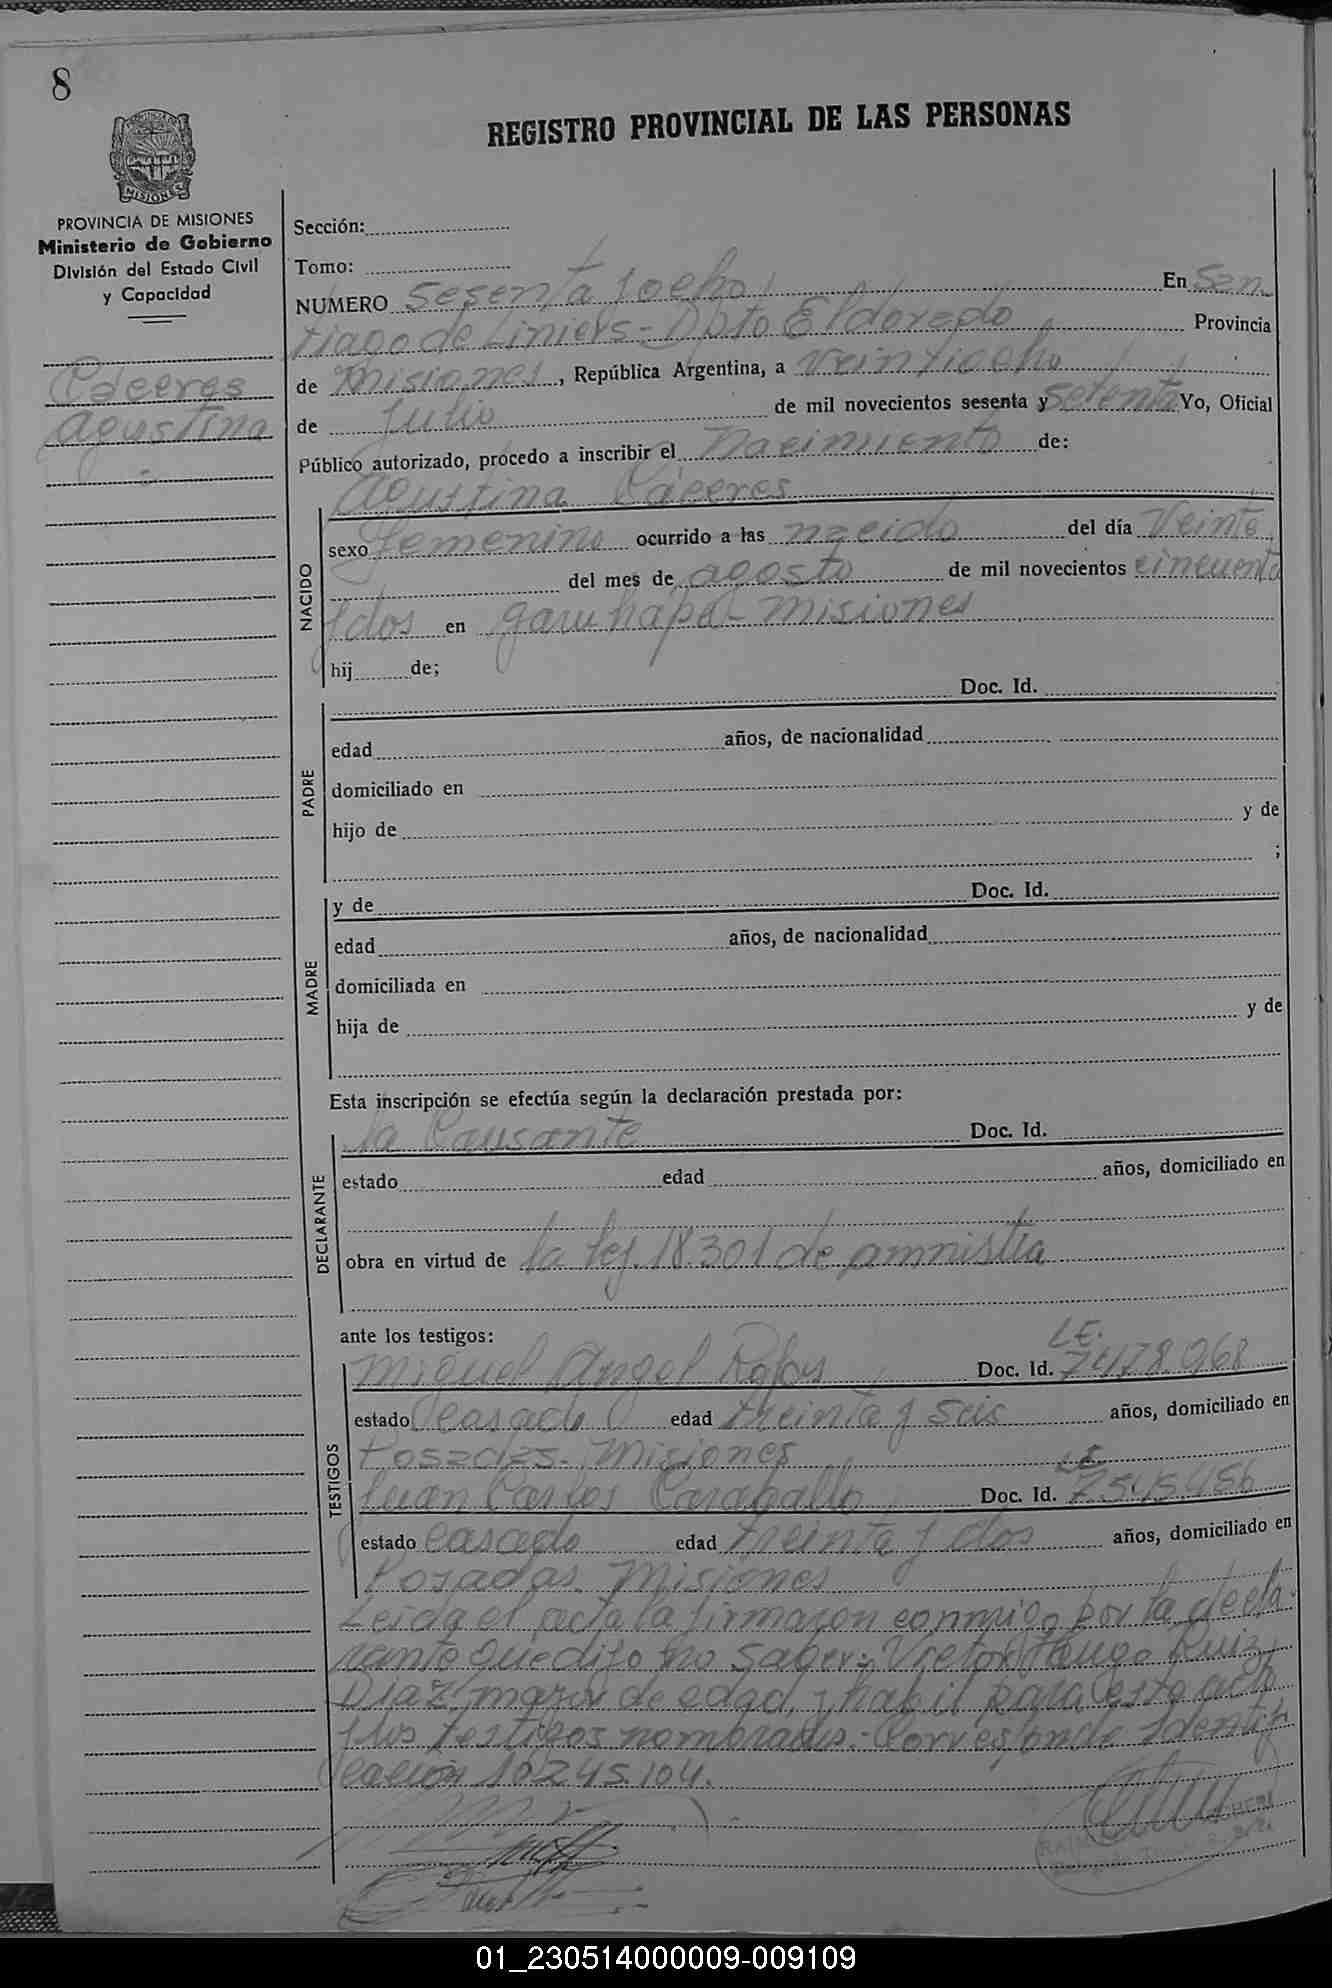 8
REGISTRO PROVINCIAL DE LAS PERSONAS
MISIONES
PROVINCIA DE MISIONES
Ministerio de Gobierno
División del Estado Civil
y Capacidad
Caceres
Agustina
Sección:
Tomo:
NUMERO Sesenta y ocho En San
tiago de Liniers - Dpto Eldorado Provincia
de Misiones, República Argentina, a veintiocho
de Julio de mil novecientos sesenta y setenta Yo, Oficial
Público autorizado, procedo a inscribir el nacimiento de:
Agustina Cáceres
NACIDO
sexo femenino ocurrido a las nacido del día veinte
del mes de agosto de mil novecientos cincuenta
y dos en garuhapé - misiones
hij de;
PADRE
Doc. Id.
edad años, de nacionalidad
domiciliado en
hijo de y de
;
MADRE
y de Doc. Id.
edad años, de nacionalidad
domiciliada en
hija de y de
Esta inscripción se efectúa según la declaración prestada por:
DECLARANTE
la Causante Doc. Id.
estado edad años, domiciliado en
obra en virtud de la ley 18.301 de amnistia
ante los testigos:
TESTIGOS
Miguel Angel Rojas Doc. Id. L.E. 7478.968
estado casado edad treinta y seis años, domiciliado en
Posadas - Misiones
Juan Carlos Caraballo Doc. Id. L.E. 7545.456
estado casado edad treinta y dos años, domiciliado en
Posadas Misiones
Leida el acta la firmaron conmigo por la decla-
rante que dijo no saber: Victor Hugo Ruiz
Diaz mayor de edad y habil para este acto
y los testigos nombrados. - Corresponde Identifi
cación 10245.104.
01_230514000009-009109